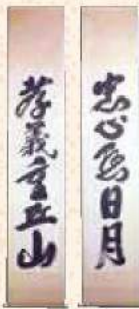 忠心懸日月
孝義重丘山